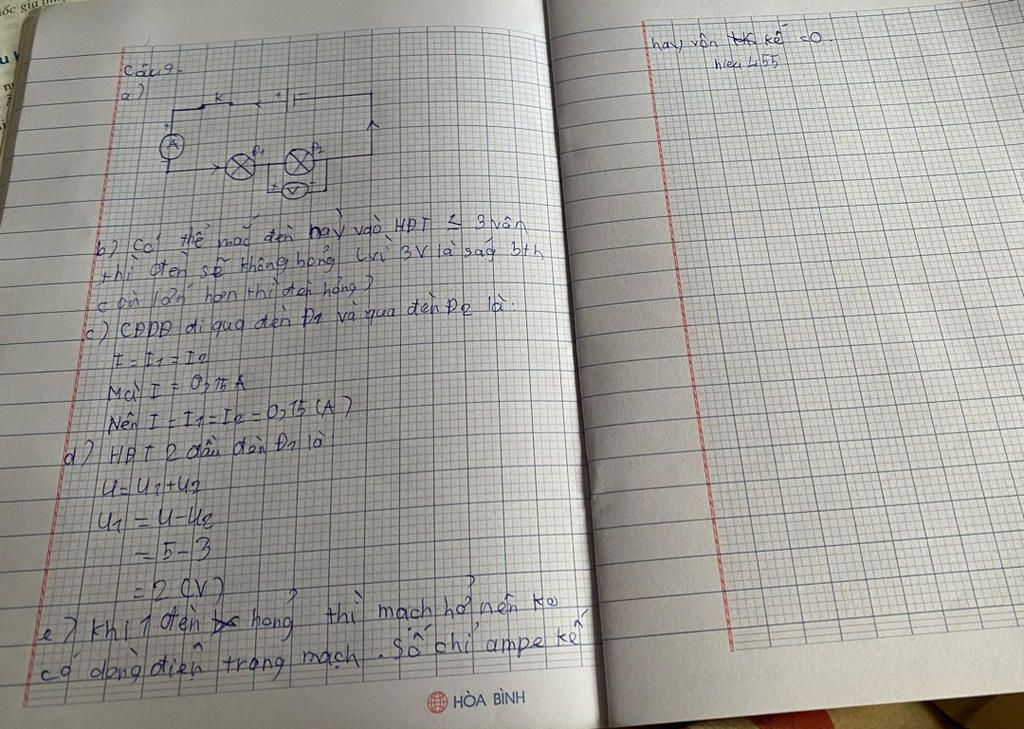 ốc gia
Câu 9.
a)
K
+ -
A
Đ1
Đ2
+ V -
b) Có thể mắc đèn này vào HĐT ≤ 3 vôn
thì đèn sẽ không hỏng (vì 3V là ság bth
còn lớn hơn thì đèn hỏng)
c) CĐDĐ đi qua đèn Đ1 và qua đèn Đ2 là:
I = I1 = I2
Mà I = 0,15 A
Nên I = I1 = I2 = 0,15 (A)
d) HĐT 2 đầu đèn Đ1 là
U = U1 + U2
U1 = U - U2
= 5 - 3
= 2 (V)
e) Khi 1 đèn hỏng thì mạch hở nên ko
có dòng điện trong mạch. Số chỉ ampe kế
HÒA BÌNH
hay vôn kế = 0.
hieu 455